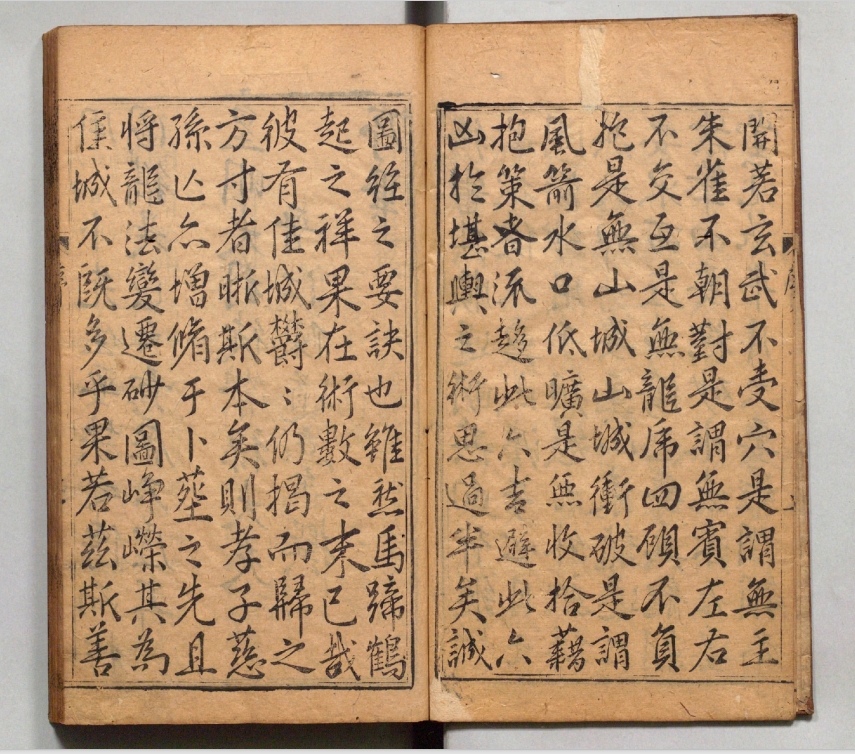 開若玄武不受穴是謂無主
朱雀不朝對是謂無賓左右
不交互是無龍虎四顧不負
抱是無山城山城衝破是謂
風箭水口低曠是無收拾藉
抱策者流趨此六吉避此六
凶於堪輿之術思過半矣誠
圖經之要訣也雖然馬蹄鶴
起之祥果在術數之末已哉
彼有佳城欝〻仍揭而歸之
方寸者晰斯本矣則孝子慈
孫亾亦增脩于卜塟之先且
将龍法變遷砂圖崢嶸其為
佳城不既多乎果若茲斯善
序